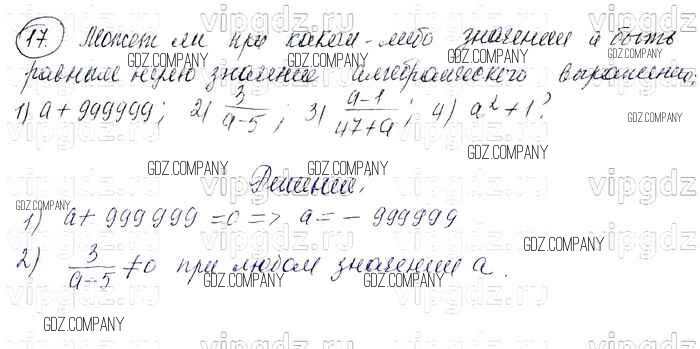 17. Может ли при каком-либо значении а быть
равным нулю значение алгебраического выражения:
1) a + 999999; 2) 3/(a-5); 3) (a-1)/(47+a); 4) a² + 1?
Решение.
1) a + 999 999 = 0 => a = - 999999
2) 3/(a-5) ≠ 0 при любом значении a.
GDZ.COMPANY
vipgdz.ru